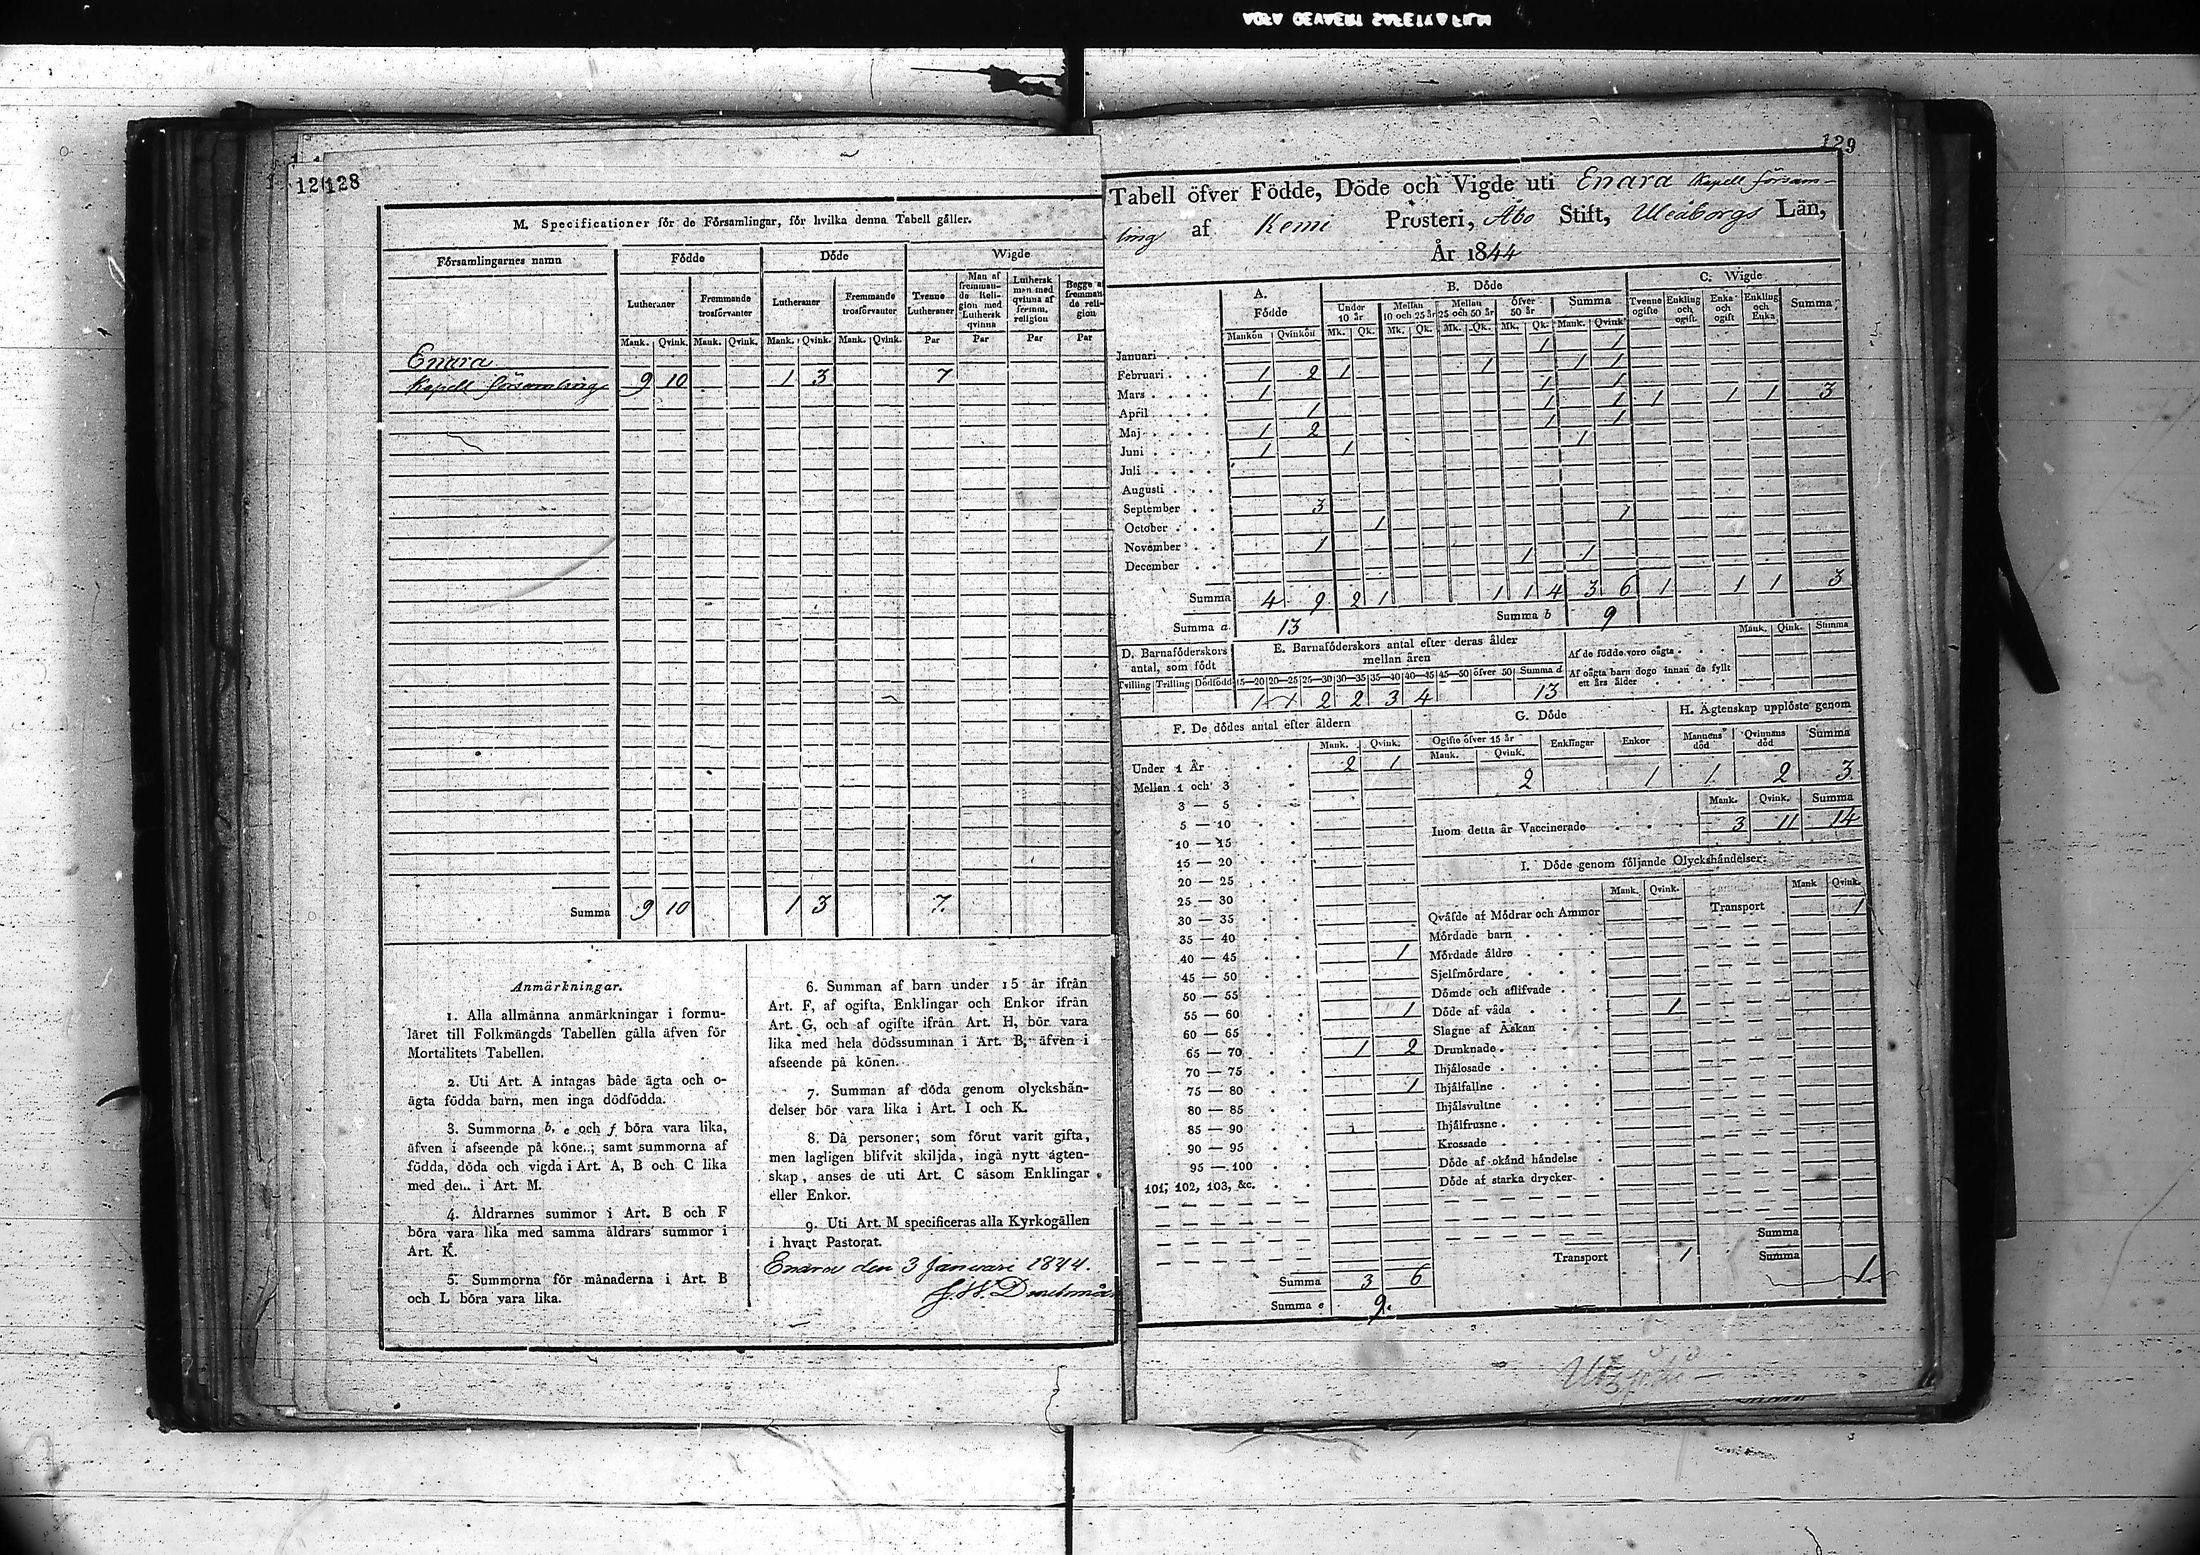 128
M. Specificationer för de Församlingar, för hvilka denna Tabell gäller.
Församlingarnes namn Födde Döde Wigde
Lutheraner Fremmande trosförvanter Lutheraner Fremmande trosförvanter Tvenne Lutheraner Man af fremmande Religion med Luthersk qvinna Luthersk man med qvinna af fremm. religion Begge af fremmande religion
Mank. Qvink. Mank. Qvink. Mank. Qvink. Mank. Qvink. Par Par Par Par
Enara
Kapell församling 9 10 1 3 7
Summa 9 10 1 3 7.
Anmärkningar.
1. Alla allmänna anmärkningar i formu-
läret till Folkmängds Tabellen gälla äfven för
Mortalitets Tabellen.
2. Uti Art. A intagas både ägta och o-
ägta födda barn, men inga dödfödda.
3. Summorna b, e och f böra vara lika,
äfven i afseende på köne..; samt summorna af
födda, döda och vigda i Art. A, B och C lika
med de.. i Art. M.
4. Åldrarnes summor i Art. B och F
böra vara lika med samma åldrars summor i
Art. K.
5. Summorna för månaderna i Art. B
och L böra vara lika.
6. Summan af barn under 15 år ifrån
Art. F, af ogifta, Enklingar och Enkor ifrån
Art. G, och af ogifte ifrån Art. H, bör vara
lika med hela dödssumman i Art. B, äfven i
afseende på könen.
7. Summan af döda genom olyckshän-
delser bör vara lika i Art. I och K.
8. Då personer, som förut varit gifta,
men lagligen blifvit skiljda, ingå nytt ägten-
skap, anses de uti Art. C såsom Enklingar
eller Enkor.
9. Uti Art. M specificeras alla Kyrkogällen
i hvart Pastorat.
Enara den 3 Januari 1844.
129
Tabell öfver Födde, Döde och Vigde uti Enara Kapell försam-
ling af Kemi Prosteri, Åbo Stift, Uleåborgs Län,
År 1844
A. Födde B. Döde C. Wigde
Under 10 år Mellan 10 och 25 år Mellan 25 och 50 år Öfver 50 år Summa Tvenne ogifte Enkling och ogift Enka och ogift Enkling och Enka Summa
Mankön Qvinkön Mk. Qk. Mk. Qk. Mk. Qk. Mk. Qk. Mank. Qvink.
Januari 1 1
Februari 1 2 1 1 1 1
Mars 1 1 1
April 1 1 1 1 1 1 3
Maj 1 2 1 1
Juni 1 1 1
Juli
Augusti
September 3
October 1 1
November 1
December 1 1
Summa 4 9 2 1 1 1 4 3 6 1 1 1 3
Summa a 13 Summa b 9
D. Barnaföderskors antal, som födt
Tvilling Trilling Dödfödd
E. Barnaföderskors antal efter deras ålder
mellan åren
15—20 20—25 25—30 30—35 35—40 40—45 45—50 öfver 50 Summa d
1 1 2 2 3 4 13
Mank. Qink. Summa
Af de födde voro oägta
Af oägta barn dogo innan de fyllt
ett års ålder
F. De dödes antal efter åldern
Mank. Qvink.
Under 1 År 2 1
Mellan 1 och 3
3 — 5
5 — 10
10 — 15
15 — 20
20 — 25
25 — 30
30 — 35
35 — 40
40 — 45 1
45 — 50
50 — 55
55 — 60 1
60 — 65
65 — 70 1 2
70 — 75
75 — 80 1
80 — 85
85 — 90
90 — 95
95 — 100
101, 102, 103, &c.
Summa 3 6
Summa e 9.
G. Döde
Ogifte öfver 15 år Enklingar Enkor
Mank. Qvink.
2 1
H. Ägtenskap upplöste genom
Mannens död Qvinnans död Summa
1 2 3
Mank. Qvink. Summa
Inom detta år Vaccinerade 3 11 14
I. Döde genom följande Olyckshändelser:
Mank. Qvink. Mank Qvink.
Qväfde af Mödrar och Ammor Transport 1
Mördade barn
Mördade äldre
Sjelfmördare
Dömde och aflifvade
Döde af våda 1
Slagne af Åskan
Drunknade
Ihjälosade
Ihjälfallne
Ihjälsvultne
Ihjälfrusne
Krossade
Döde af okänd händelse
Döde af starka drycker
Summa
Transport 1 Summa 1